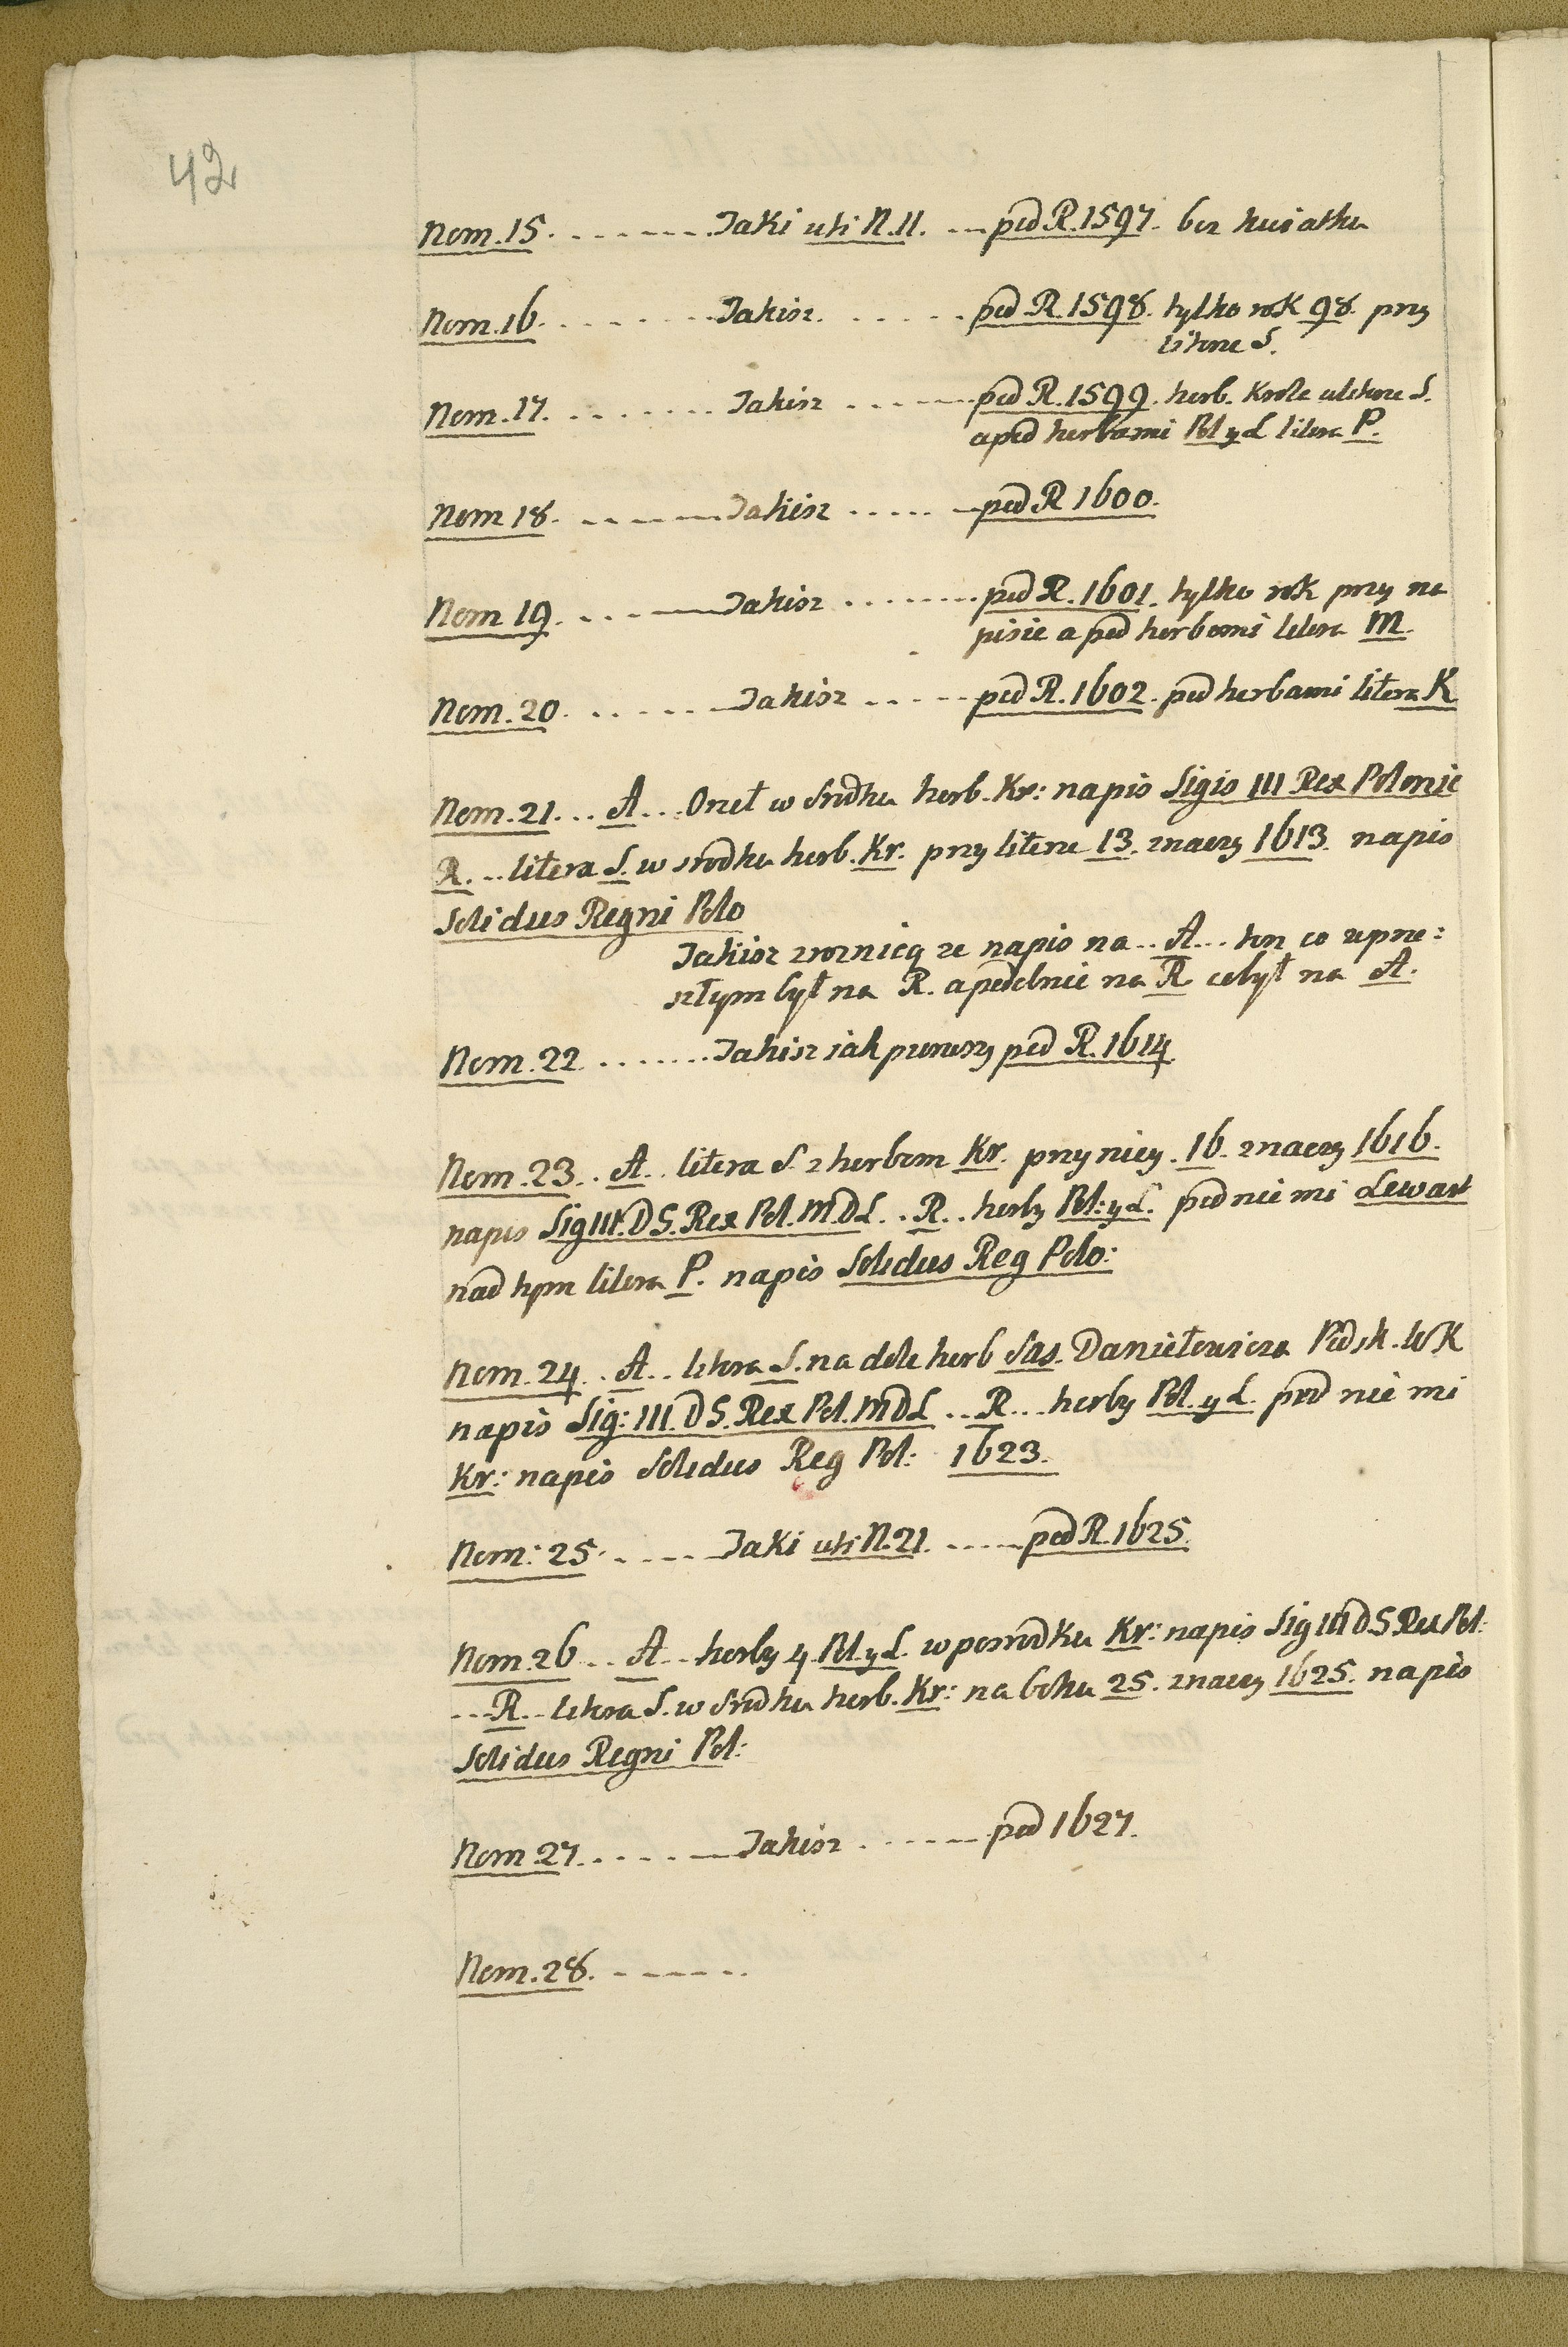 42
Nom. 15. . . . . . . . Jaki uti N. 11. . . . pod R. 1597. bez kwiatku
Nom. 16. . . . . . . . Jakisz. . . . . . . pod R. 1598. tylko rok 98. przy
literze S.
Nom. 17. . . . . . . . Jakisz . . . . . pod R. 1599. herb. Krole w literze S.
a pod herbami Pol y L litera P.
Nom 18. . . . . . . Jakisz . . . . . . pod R 1600.
Nom 19. . . . . . Jakisz . . . . . . . . pod R. 1601. tylko rok przy na
pisie a pod herbami litera M.
Nom. 20. . . . . . . Jakisz . . . . . pod R. 1602. pod herbami litera K
Nom. 21. . . A . . . Orzeł w srodku herb. Kr: napis Sigis III Rex Polonie
R. . . litera S. w srodku herb. Kr. przy literze 13. znaczy 1613. napis
Solidus Regni Polo
Jakisz z roznicą ze napis na . . A . . . ten co w prze:
szłym był na R. a podobnie na R co był na A.
Nom. 22 . . . . . . . Jakisz jak pierwszy pod R. 1614
Nom. 23. . A. . litera S z herbem Kr. przy niey. 16. znaczy 1616.
napis Sig III. D G. Rex Pol. M. D L . . R. . herby Pol: y L. pod nie mi Lewart
nad tym litera P. napis Solidus Reg Polo:
Nom. 24. . A . . litera S. na dole herb Sas. Daniełowicza Podsk. W K
napis Sig: III. D G. Rex Pol. M D L . . R . . . herby Pol. y L. pod nie mi
Kr: napis Solidus Reg Pol: 1623.
Nom: 25. . . . . . Jaki uti N. 21. . . . . . pod R. 1625.
Nom. 26 . . A . . herby 4 Pol y L. w posrodku Kr: napis Sig III D G Rex Pol:
. . . R . . litera S. w srodku herb. Kr: na boku 25. znaczy 1625. napis
Solidus Regni Pol:
Nom 27. . . . . . . Jakisz . . . . . . pod 1627.
Nom. 28. . . . . . .